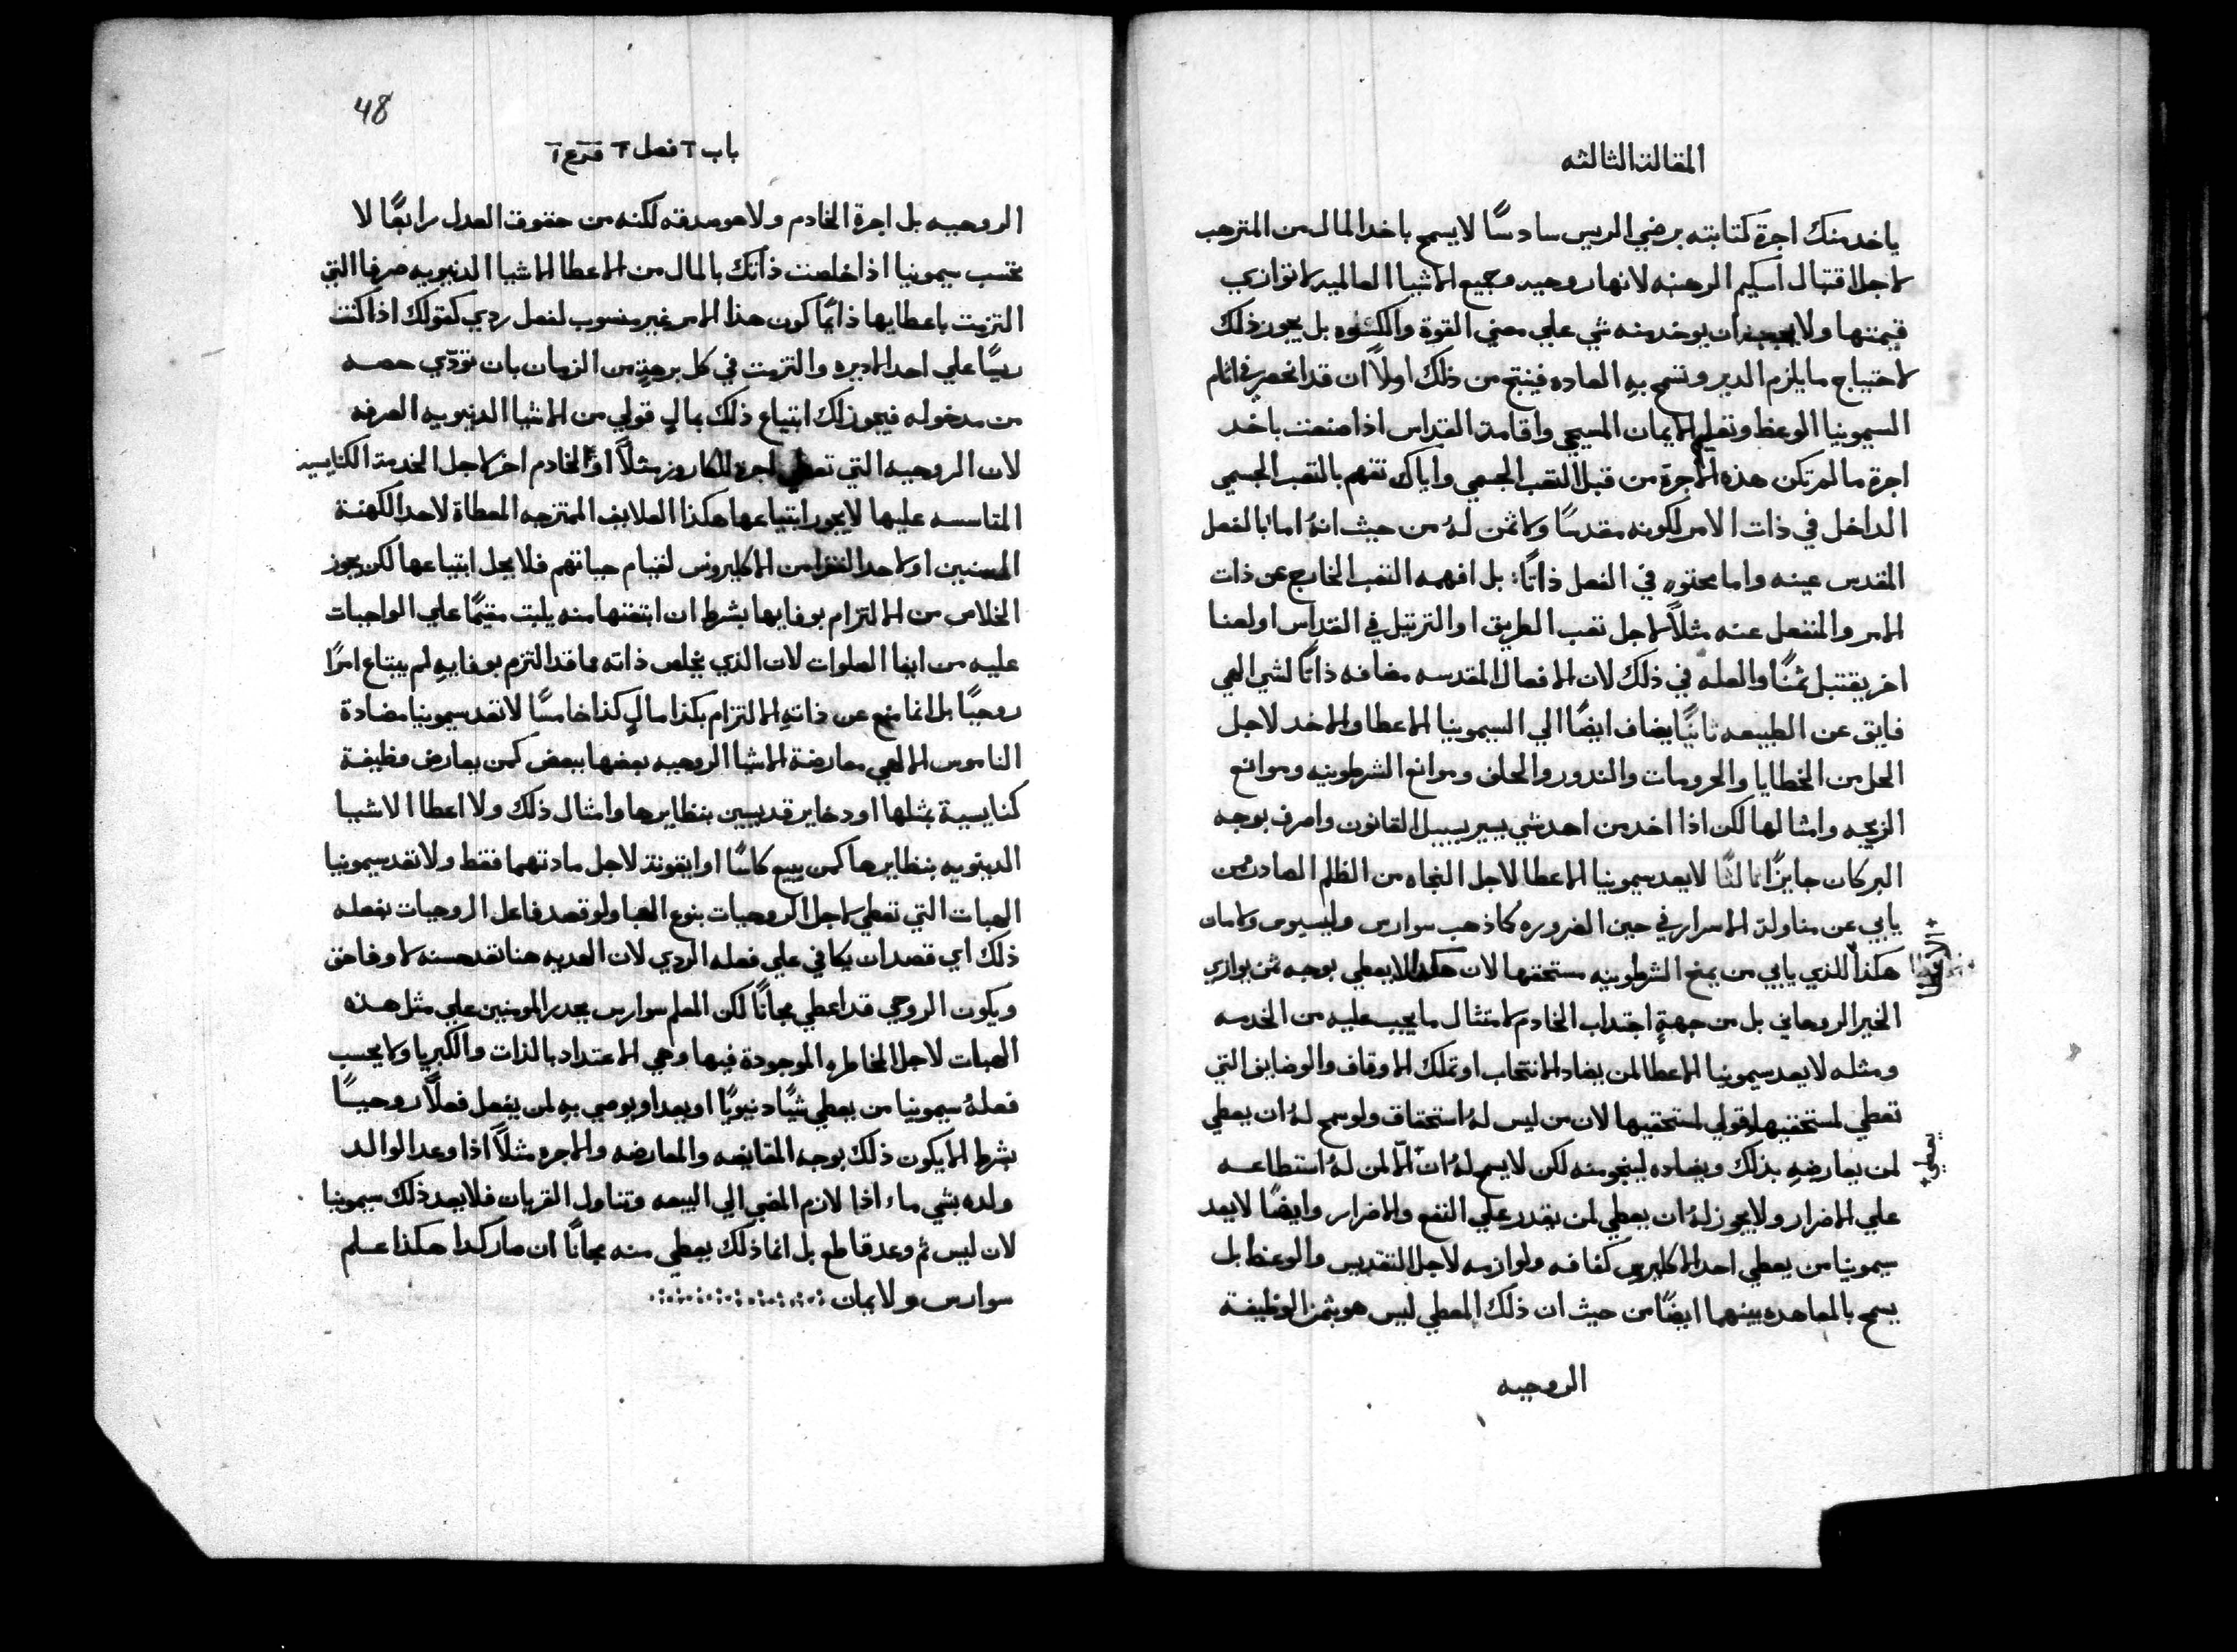 المقالة الثالثه
ياخد منك اجرة كتابته برضي الريس سادسًا لا يسمح باخد المال من المترهب
لاجل اقتبال اسكيم الرهبنه لانها روحيه وجميع الاشيا العالميه لا توازي
قيمتها ولا يجب ان يوخد منه شي علي معني القوة والكسوه بل يجوز ذلك
لاحتياج ما يلزم الدير وتسمح به العاده فينتج من ذلك اولاً ان قد انحصر في اثام
السيمونيا الوعظ وتعليم الايمان المسيحي واقامة القداس اذا صنعت باخد
اجرة ما لم تكن هذه الاجرة من قبل التعب الجسمي واياك تفهم بالتعب الجسمي
الداخل في ذات الامر لكونه مقدسًا ولا ثمن لهُ من حيث انهُ اما بالفعل
المقدس عينه واما محتوٍ في الفعل ذاتًا: بل افهمه التعب الخارج عن ذات
الامر والمنفصل عنه مثلاً لاجل تعب الطريق او الترتيل في القداس اولعنا
اخر يقتبل ثمنًا والعله في ذلك لان الافعال المقدسه مضافه ذاتًا لشي الهي
فايق عن الطبيعه ثانيًا يضاف ايضًا الي السيمونيا الاعطا والاخد لاجل
الحل من الخطايا والحرومات والندور والحلف وموانع الشرطونيه وموانع
الزيجه وامثالها لكن اذا اخد من احد شي يسير بسبيل القانون واصرف بوجه
البر كان جايزًا ثالثًا لا يعد سيمونيا الاعطا لاجل النجاه من الظلم الصادر من
يابي عن مناولة الاسرار في حين الضروره كما ذهب سوارس وليسيوس ولايمان
هكذا للذي يابي من يمنح الشرطونيه مستحقها لان هكذا لا يعطي بوجه ثمن يوازي
+ الاعطا
الخير الروحاني بل من جهةٍ اجتداب الخادم لامتثال ما يجب عليه من الخدمه
ومثله لا يعد سيمونيا الاعطا لمن يضاد الانتخاب او تملك الاوقاف والوضايف التي
تعطي لمستحقيها قولي لمستحقيها لان من ليس لهُ استحقاق ولو سمح لهُ ان يعطي
لمن يعارضهِ بذلك ويضاده لينجو منه لكن لا يسمح لهُ ان الا لمن لهُ استطاعه
يعطي +
علي الاضرار ولا يجوز لهُ ان يعطي لمن يقدر علي النفع والاضرار وايضًا لا يعد
سيمونيا من يعطي احد الاكليرس كفافه ولوازمه لاجل التقديس والوعظ بل
يسمح بالمعاهده بينهما ايضًا من حيث ان ذلك المعطي ليس هو بثمن الوظيفة
الروحيه
48
باب ٢ فصل ٢ فرع ٢
الروحيه بل اجرة الخادم ولا هو صدقه لكنه من حقوق العدل رابعًا لا
تحتسب سيمونيا اذا خلصت ذاتك بالمال من الاعطا الاشيا الدنيويه صرفا التي
التزمت باعطايها دايمًا كون هذا الامر غير منسوب لفعل ردي كقولك اذا كنت
ريسًا علي احد الاديره والتزمت في كل برهةٍ من الزمان بان تودّي حصه
من مدخوله فيجوز لك ابتياع ذلك بمالٍ قولي من الاشيا الدنيويه الصرفه
لان الروحيه التي تعطي اجرة للكاروز مثلاً او لخادم اخر لاجل الخدمة الكنايسيه
المتاسسه عليها لا يجوز ابتياعها هكذا العلايف الممتزجه المعطاة لاحد الكهنة
المسنين او لاحد الفقرا من الاكليروس لقيام حياتهم فلا يحل ابتياعها لكن يجوز
الخلاص من الالتزام بوفايها بشرط ان ابتعتها منه يلبت مقيمًا علي الواجبات
عليه من ايفا الصلوات لان الذي يخلص ذاته مما قد التزم بوفايهِ لم يبتاع امرًا
روحيًا بل انما منع عن ذاتهِ الالتزام بكذا مالٍ كذا خامسًا لا تعد سيمونيا مضادة
الناموس الالهي معارضة الاشيا الروحيه بعضها ببعض كمن يعارض وظيفة
كنايسية بمثلها او دخاير قديسين بنظايرها وامثال ذلك ولا اعطا الاشيا
الدنيويه بنظايرها كمن يبيع كاسًا او ايقونة لاجل مادتهما فقط ولا تعد سيمونيا
الهبات التي تعطي لاجل الروحيات بنوع الهبا ولو قصد فاعل الروحيات بفعله
ذلك اي قصد ان يكافي علي فعله الردي لان الهديه هنا تعد حسنه لا وفا حق
ويكون الروحي قد اعطي مجانًا لكن المعلم سوارس يحدر المومنين علي مثل هذه
الهبات لاجل المخاطره الموجودة فيها وهي الاعتداد بالذات والكبريا ولا يحسب
فعلهُ سيمونيا من يعطي شيًا دنيويًا او يعد او يوصي بهِ لمن يفعل فعلاً روحيًا
بشرط الا يكون ذلك بوجه المقايضه والمعارضه والاجره مثلاً اذا وعد الوالد
ولده بشي ما، اذا لازم المضي الي البيعه وتناول القربان فلا يعد ذلك سيمونيا
لان ليس ثم وعد قاطع بل انما ذلك يعطي منه مجانًا ان صار كدا هكذا علم
سوارس ولايمان